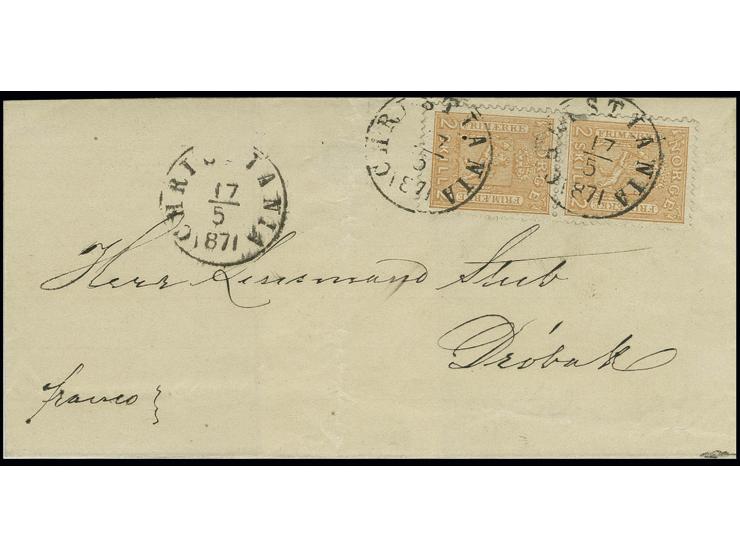 CHRISTIANIA
17
5
1871
CHRISTIANIA
17
5
1871
CHRISTIANIA
17
5
1871
NORGE
FRIMÆRKE
2 SKILL. 2
NORGE
FRIMÆRKE
2 SKILL. 2
Herr Lensmand Stub
Dröbak
franco